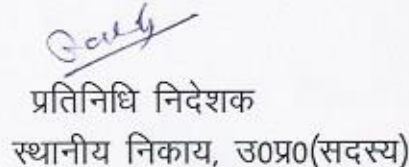 प्रतिनिधि निदेशक
स्थानीय निकाय, उ0प्र0(सदस्य)